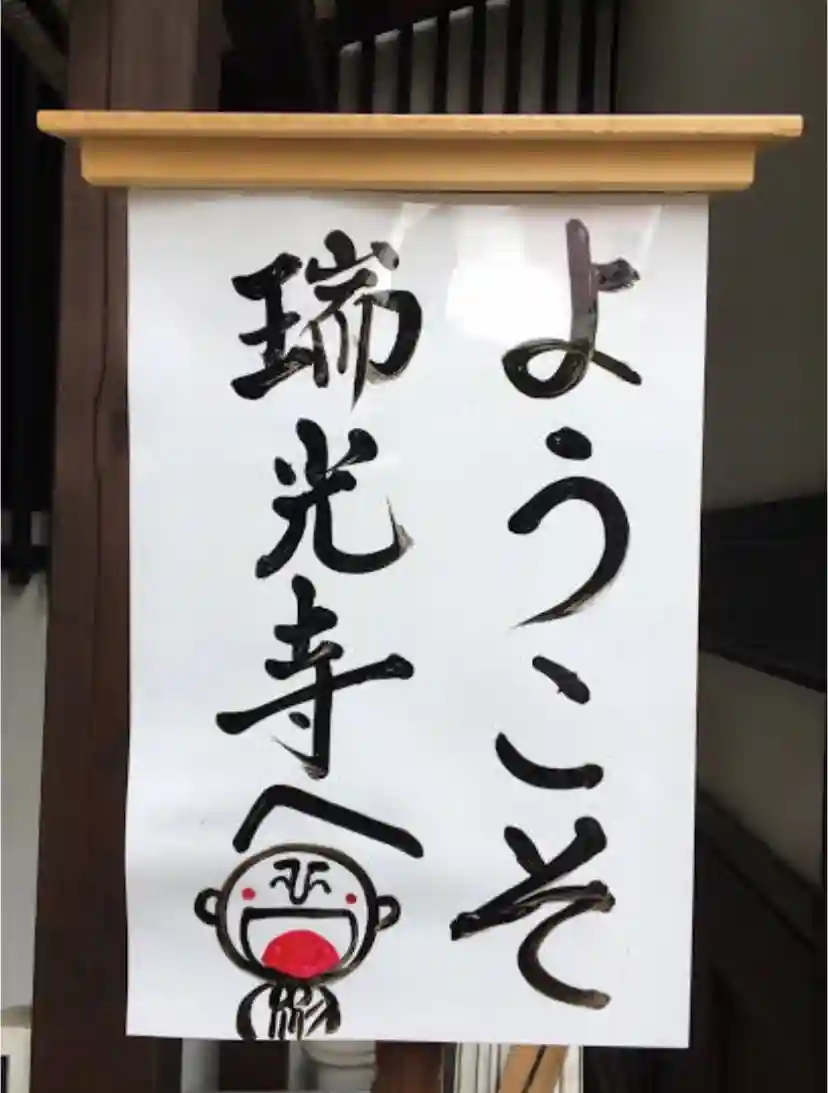 ようこそ
瑞光寺へ